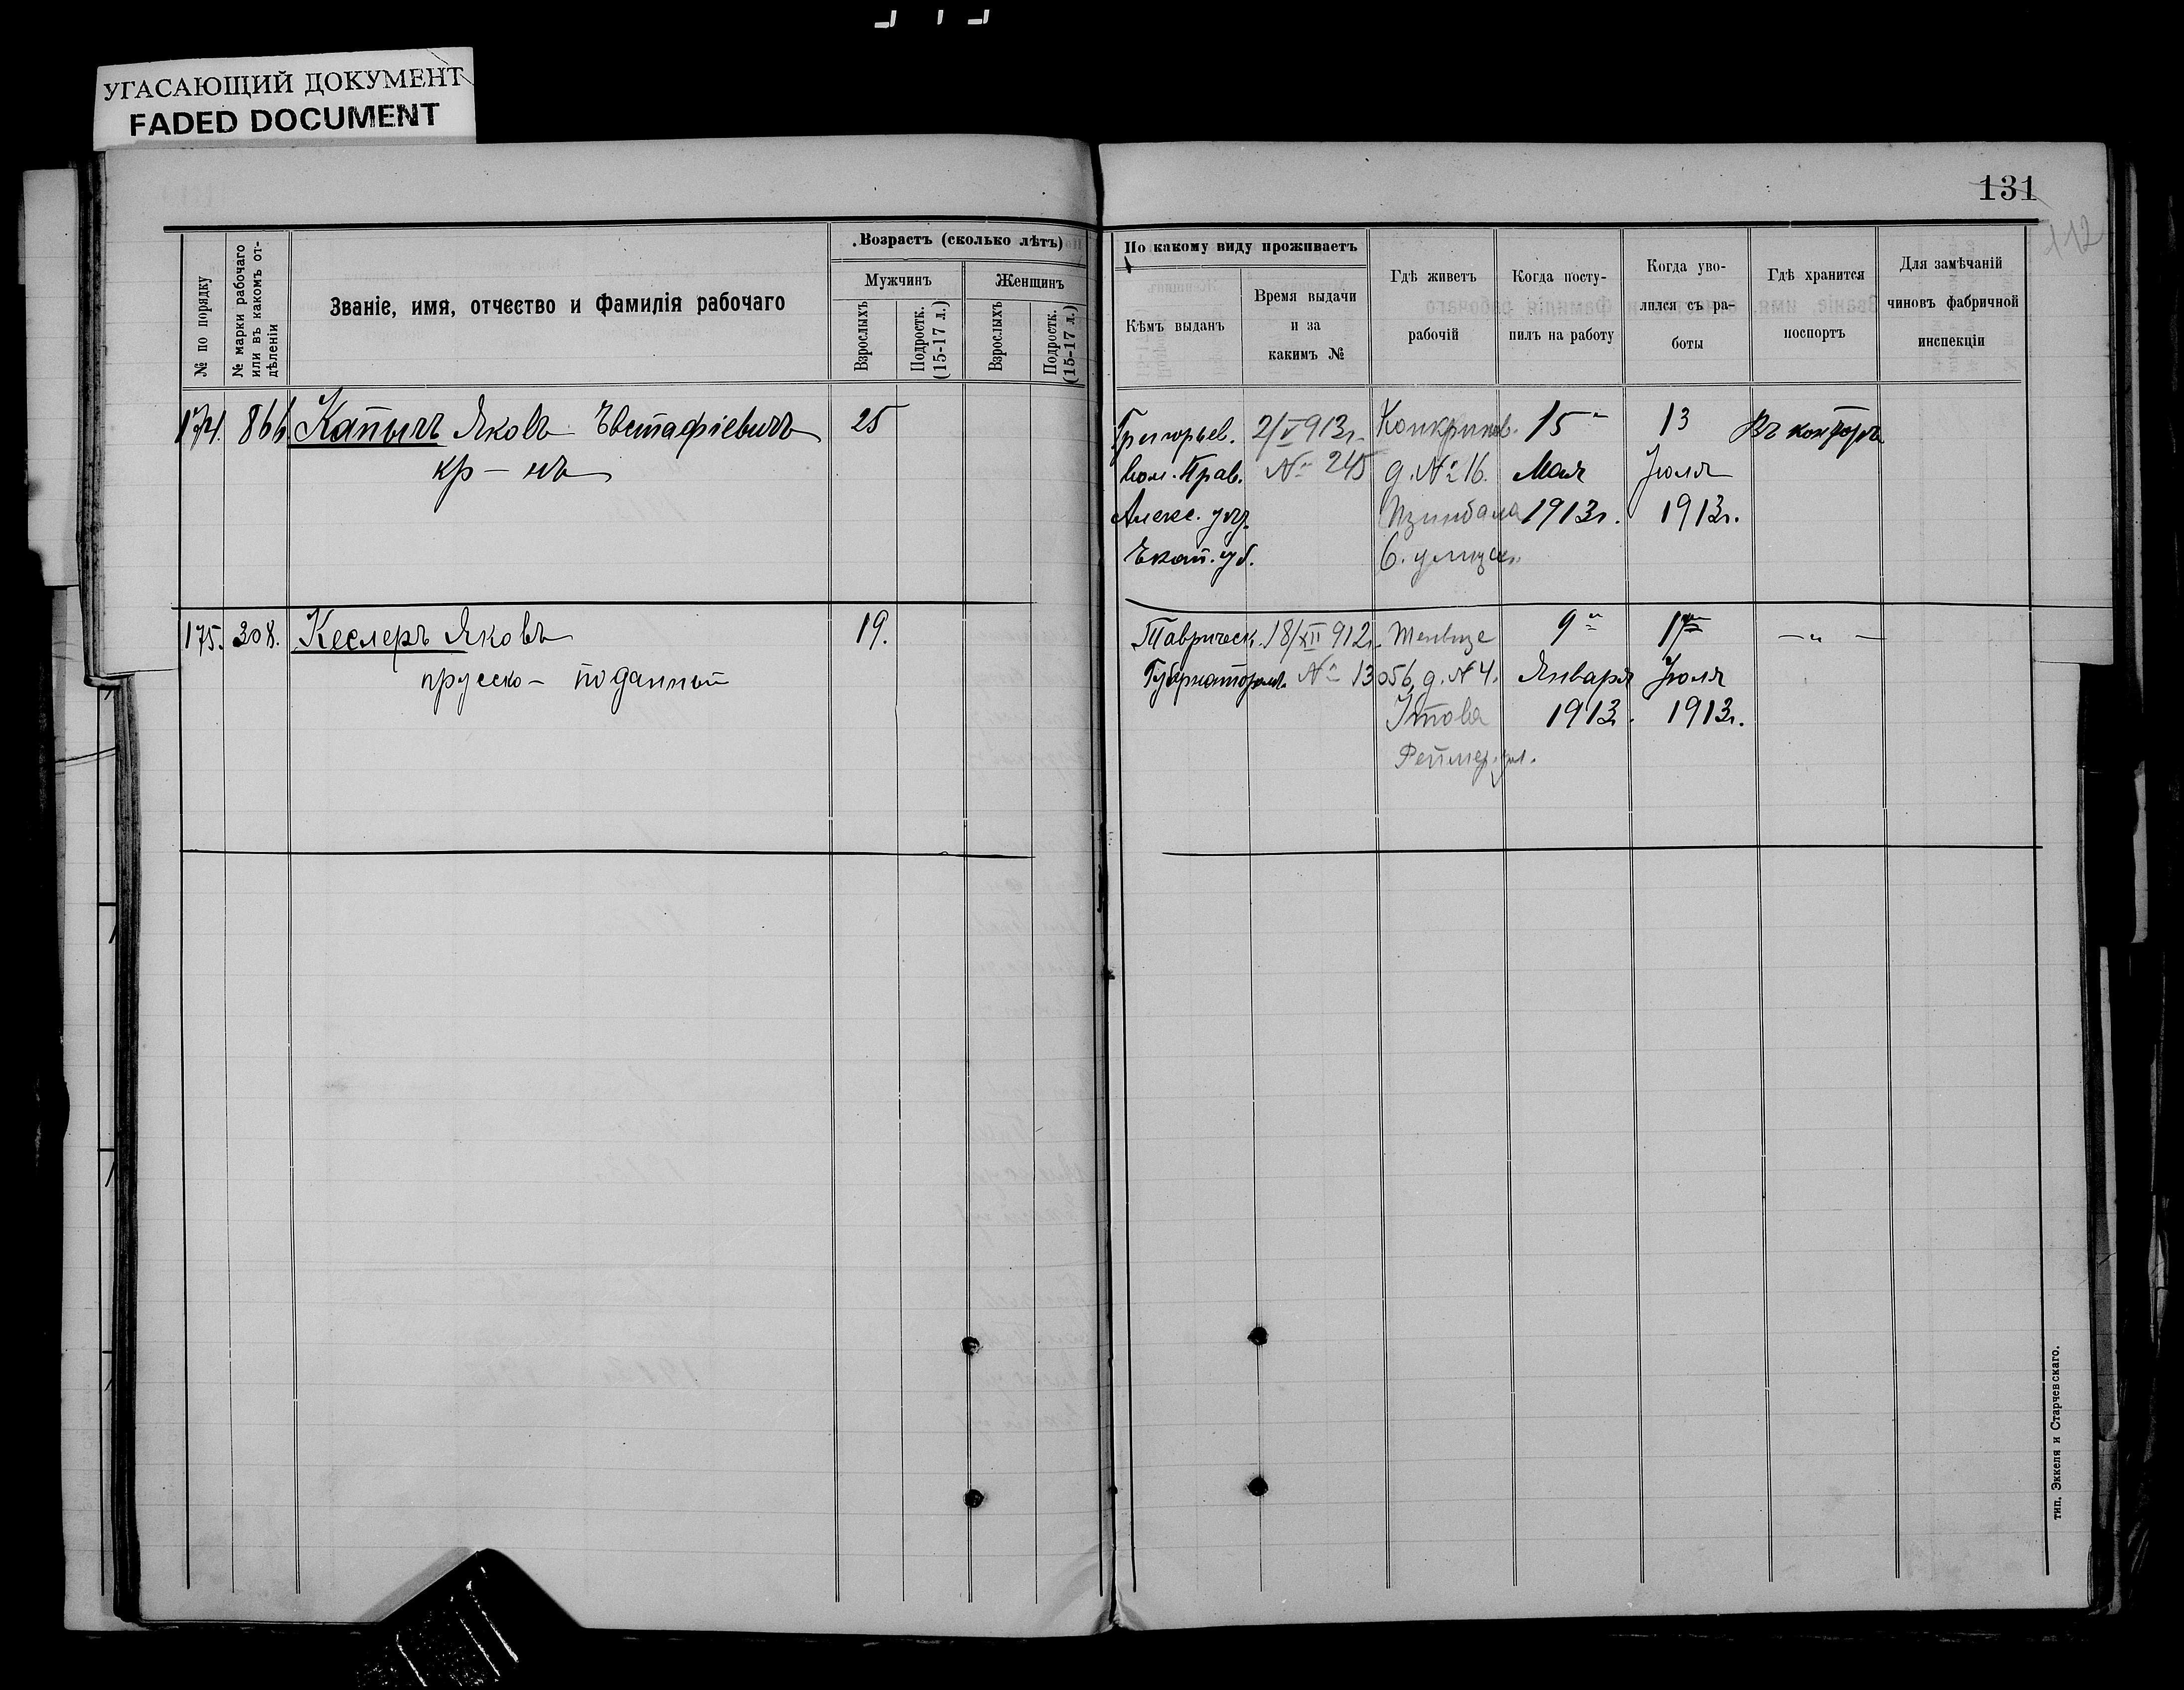 УГАСАЮЩИЙ ДОКУМЕНТ
FADED DOCUMENT
131
112
№ по порядку
№ марки рабочаго
или въ какомъ от-
дѣленіи
Званіе, имя, отчество и фамилія рабочаго
Возрастъ (сколько лѣтъ)
Мужчинъ
Женщинъ
Взрослыхъ
Подростк.
(15-17 л.)
Взрослыхъ
Подростк.
(15-17 л.)
По какому виду проживаетъ
Кѣмъ выданъ
Время выдачи
и за
какимъ №
Гдѣ живетъ
рабочій
Когда посту-
пилъ на работу
Когда уво-
лился съ ра-
боты
Гдѣ хранится
поспортъ
Для замѣчаній
чиновъ фабричной
инспекціи
174. 866 Яковъ Евстафіевичъ 25
кр-нъ
Григорьев. 2/V 913г.
вол. Прав. № 245
Алекс. уѣз.
Екат. губ.
д. № 16.
6. улица
15
Мая
1913г.
13
Іюля
1913г.
Въ конторѣ
175. 308. Кеслеръ Яковъ 19.
прусско-поданный
Таврическ. 18/XII 912г.
Губернатором. № 13056
д. № 4.
9
Января
1913г.
17
Іюля
1913г.
— „ —
тип. Эккеля и Старчевскаго.